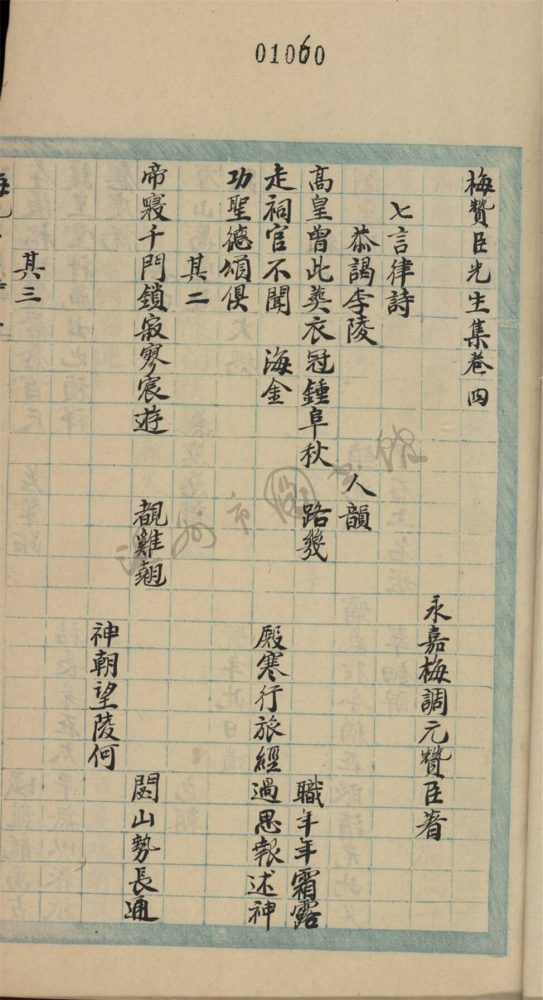 01060
梅贊臣先生集卷四
永嘉梅調元贊臣著
七言律詩
恭謁李陵 人韻
高皇曾此葬衣冠鍾阜秋 路幾 職年年霜露
走祠官不聞 海金 殿寒行旅經過思報述神
功聖德頌俱
其二
帝寢千門鎖寂寥宸遊 都雞翹 閟山勢長通
神朝望陵何
其三